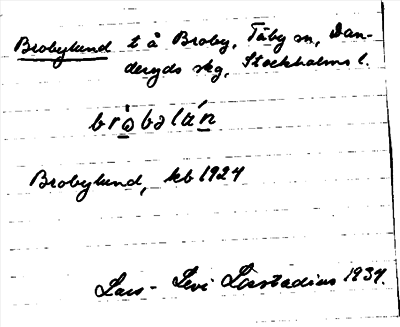 Brobylund t å Broby, Täby sn, Dan-
deryds skg, Stockholms l.
bròbəlán
Brobylund, kb 1924
Lars-Levi Læstadius 1934.